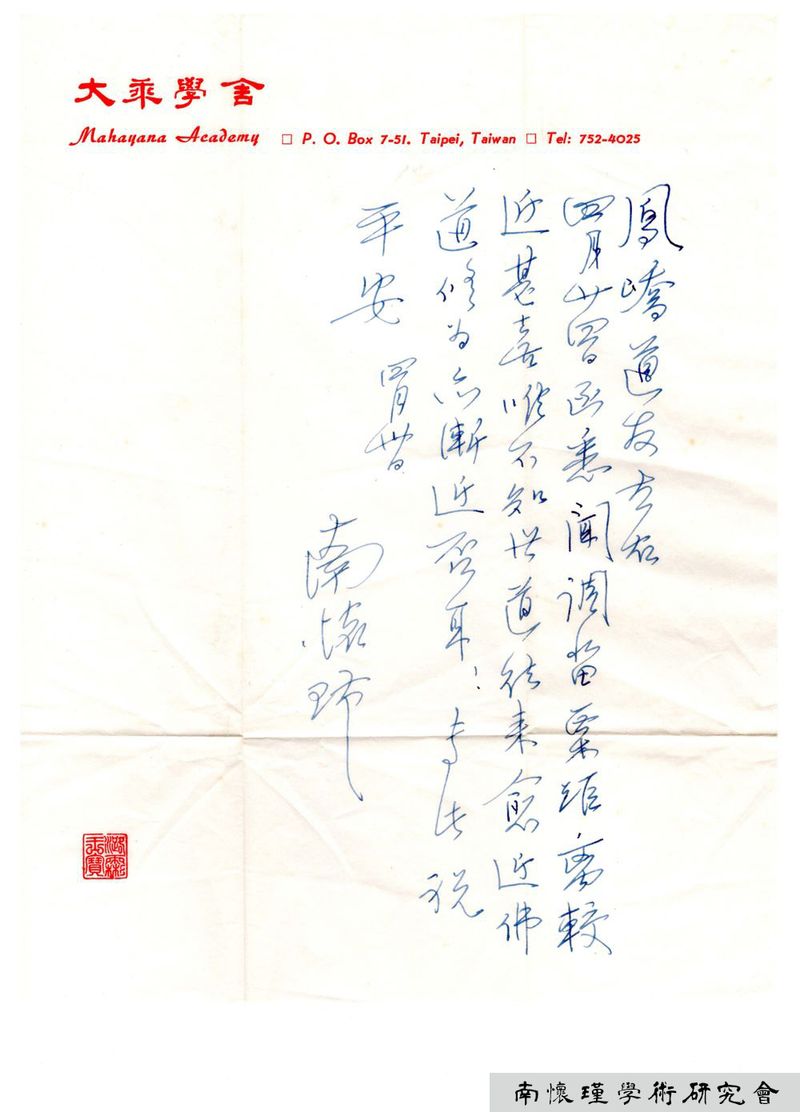 大乘學舍
Mahayana Academy □ P. O. Box 7-51. Taipei, Taiwan □ Tel: 752-4025
鳳嶠道友左右
四月廿四日函悉聞調苗栗距離較
近甚喜唯不知世道往來愈近佛
道修為亦漸近否耳！專此祝
平安 四月廿
南懷瑾
南懷瑾學術研究會